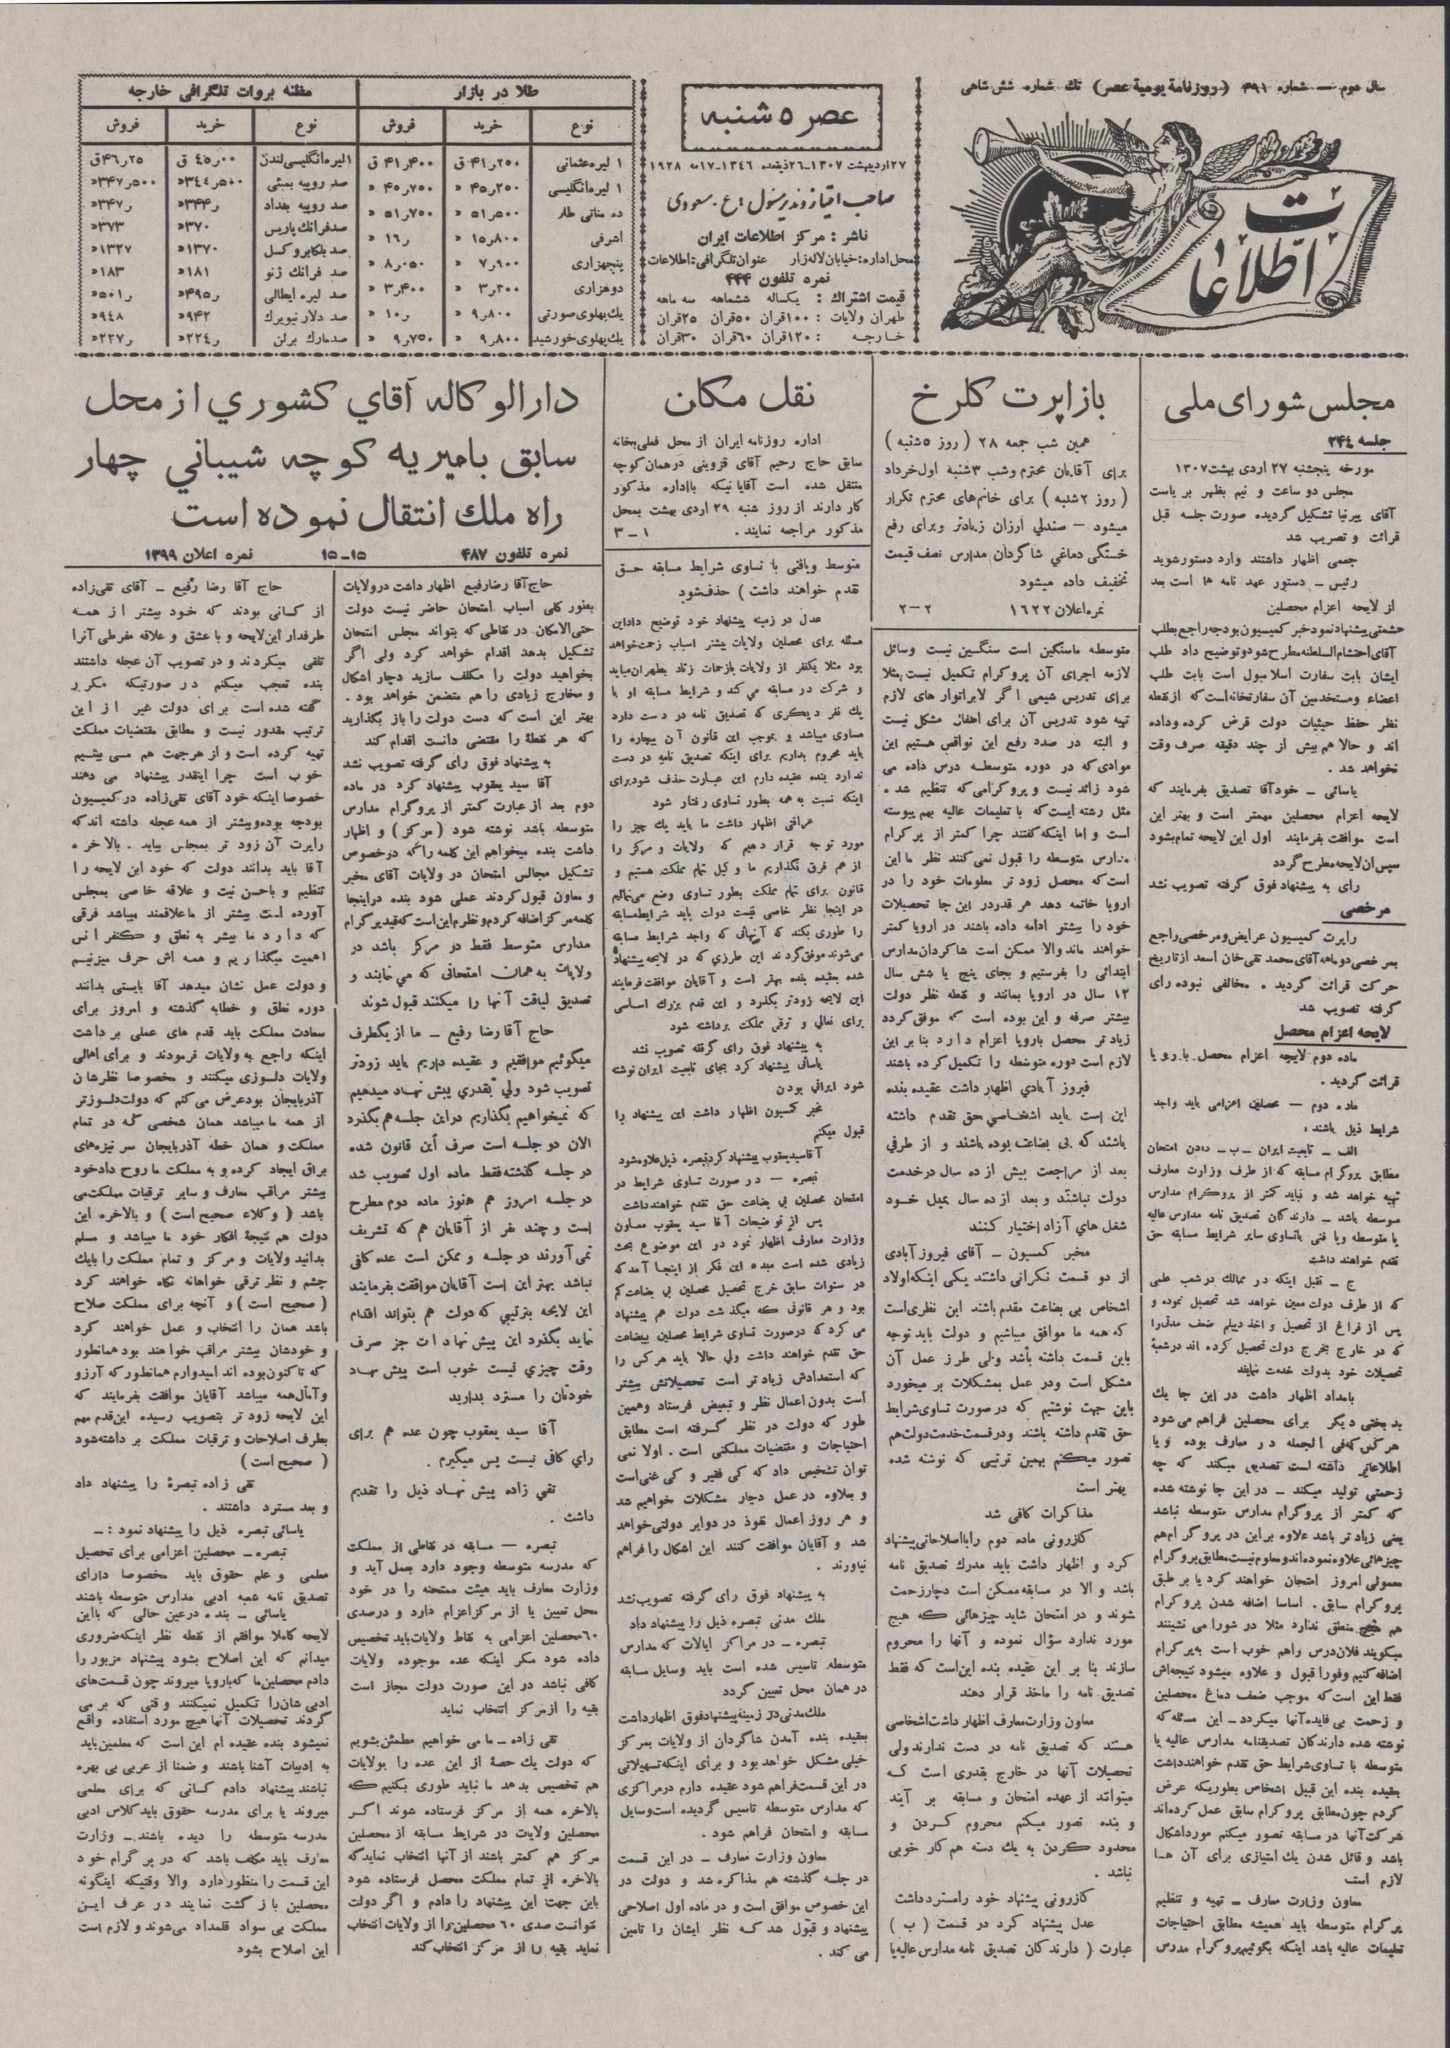 سال دوم — شماره ۳۹۱ (روزنامهٔ یومیهٔ عصر) تك شماره شش شاهی
اطلاعات
عصر ۵ شنبه
۲۷ اردیبهشت ۱۳۰۷ـ۲۶ ذیقعده ۱۳۴۶ـ۱۷ مه ۱۹۲۸
صاحب امتیاز و مدیر مسئول : ع . مسعودی
ناشر : مرکز اطلاعات ایران
محل اداره : خیابان لاله زار عنوان تلگرافی : اطلاعات
نمره تلفون ۴۴۴
قیمت اشتراك : یکساله ششماهه سه ماهه
طهران ولایات : ۱۰۰ قران ۵۰ قران ۲۵ قران
خارجه : ۱۲۰ قران ۶۰ قران ۳۰ قران
طلا در بازار
نوع خرید فروش
۱ لیره عثمانی ۲۵۰ر۴۱ ق ۴۰۰ر۴۱ ق
۱ لیره انگلیسی ۲۵۰ر۴۵ « ۷۰۰ر۴۵ «
ده مناتی طلا ۵۰۰ر۵۱ « ۷۰۰ر۵۱ «
اشرفی ۸۰۰ر۱۵ « ر۱۶ «
پنجهزاری ۹۰۰ر۷ « ۰۵۰ر۸ «
دوهزاری ۲۰۰ر۳ « ۴۰۰ر۳ «
یك پهلوی صورتی ۸۰۰ر۹ « ر۱۰ «
یك پهلوی خورشید ۸۰۰ر۹ « ۷۵۰ر۹ «
مظنه بروات تلگرافی خارجه
نوع خرید فروش
۱ لیره انگلیسی لندن ۰۰ر۴۵ ق ۲۵ر۴۶ ق
صد روپیه بمبئی ۵۰۰ر۳۴۴« ۵۰۰ر۳۴۷«
صد روپیه بغداد ر۳۴۴« ر۳۴۷«
صد فرانك پاریس ۳۷۰« ۳۷۳«
صد بلگا بروکسل ۱۳۷۰« ۱۳۲۷«
صد فرانك ژنو ۱۸۱« ۱۸۳«
صد لیره ایطالی ر۴۹۵« ر۵۰۱«
صد دلار نیویرك ۹۴۲« ۹۴۸«
صد مارك برلن ر۲۲۴« ر۲۲۷«
مجلس شورای ملی
جلسه ۲۴۴
مورخه پنجشنبه ۲۷ اردی بهشت ۱۳۰۷
مجلس دو ساعت و نیم بظهر بریاست
آقای پیرنیا تشکیل گردیده صورت جلسه قبل
قرائت و تصویب شد
جمعی اظهار داشتند وارد دستور شوید
رئیس ـ دستور عهد نامه ها است بعد
از لایحه اعزام محصلین
حشمتی پیشنهاد نمود خبر کمیسیون بودجه راجع بطلب
آقای احتشام السلطنه مطرح شود و توضیح داد طلب
ایشان بابت سفارت اسلامبول است بابت طلب
اعضاء و مستخدمین آن سفارتخانه است که از نقطه
نظر حفظ حیثیات دولت قرض کرده و داده
اند و حالا هم بیش از چند دقیقه صرف وقت
نخواهد شد .
یاسائی ـ خود آقا تصدیق بفرمایند که
لایحه اعزام محصلین مهمتر است و بهتر این
است موافقت بفرمایند اول این لایحه تمام بشود
سپس آن لایحه مطرح گردد
رأی به پیشنهاد فوق گرفته تصویب نشد
مرخصی
راپرت کمیسیون عرایض و مرخصی راجع
بمرخصی دو ماهه آقای محمد تقی خان اسعد از تاریخ
حرکت قرائت گردید . مخالفی نبوده رأی
گرفته تصویب شد
لایحه اعزام محصل
ماده دوم لایحه اعزام محصل باروپا
قرائت گردید .
ماده دوم — محصلین اعزامی باید واجد
شرایط ذیل باشند :
الف ـ تابعیت ایران ـ ب ـ دادن امتحان
مطابق پروگرام مسابقه که از طرف وزارت معارف
تهیه خواهد شد و نباید کمتر از پروگرام مدارس
متوسطه باشد ـ دارندگان تصدیق نامه مدارس عالیه
یا متوسطه ویا فنی باتساوی سایر شرایط مسابقه حق
تقدم خواهند داشت
ج ـ تقبل اینکه در ممالك در شعب علمی
که از طرف دولت معین خواهد شد تحصیل نموده و
پس از فراغ از تحصیل و اخذ دیپلم ضعف مدتی را
که در خارج بخرج دولت تحصیل کرده اند در شعبهٔ
تحصیلات خود بدولت خدمت نمایند
بامداد اظهار داشت در این جا یك
بدبختی دیگر برای محصلین فراهم می شود
هر کس که فی الجمله در معارف بوده و یا
اطلاعاتی داشته است تصدیق میکند که چه
زحمتی تولید میکند ـ در این جا نوشته شده
که کمتر از پروگرام مدارس متوسطه نباشد
یعنی زیاد تر باشد علاوه براین در پروگرام هم
چیزهائی علاوه نموده اند و معلوم نیست مطابق پروگرام
معمولی امروز امتحان خواهند کرد یا بر طبق
پروگرام سابق . اساسا اضافه شدن پروگرام
هم هیچ منطق ندارد مثلا در شورا می نشینند
میگویند فلان درس راهم خوب است به پرگرام
اضافه کنیم و فورا قبول و علاوه میشود نتیجه اش
فقط این است که موجب ضعف دماغ محصلین
و زحمت بی فایده آنها میگردد ـ این مسئله که
نوشته شده دارندگان تصدیقنامه مدارس عالیه یا
متوسطه با تساوی شرایط حق تقدم خواهند داشت
بعقیده بنده این قبیل اشخاص بطوریکه عرض
کردم چون مطابق پروگرام سابق عمل کرده اند
شرکت آنها در مسابقه تصور میکنم مورد اشکال
باشد و قائل شدن یك امتیازی برای آن ها
لازم است
معاون وزارت معارف ـ تهیه و تنظیم
پرگرام متوسطه باید همیشه مطابق احتیاجات
تعلیمات عالیه باشد اینکه بگوئیم پروگرام مدرس
باز اپرت کلرخ
همین شب جمعه ۲۸ (روز ۵شنبه)
برای آقایان محترم وشب ۳شنبه اول خرداد
(روز ۲شنبه) برای خانم های محترم تکرار
میشود — صندلی ارزان زیادتر وبرای رفع
خستگی دماغی شاگردان مدارس نصف قیمت
تخفیف داده میشود
نمره اعلان ۱۶۲۲ ۲–۲
متوسطه ما سنگین است سنگین نیست وسائل
لازمه اجرای آن پروگرام تکمیل نیست مثلا
برای تدریس شیمی اگر لابراتوار های لازم
تهیه شود تدریس آن برای اطفال مشکل نیست
و البته در صدد رفع این نواقص هستیم این
موادی که در دوره متوسطه درس داده می
شود زائد نیست و پروگرامی که تنظیم شد .
مثل رشته ایست که با تعلیمات عالیه بهم پیوسته
است و اما اینکه گفتند چرا کمتر از پرگرام
مدارس متوسطه را قبول نمی کنند نظر ما این
است که محصل زود تر معلومات خود را در
اروپا خاتمه دهد هر قدر در این جا تحصیلات
خود را بیشتر ادامه داده باشند در اروپا کمتر
خواهند ماند والا ممکن است شاگردان مدارس
ابتدائی را بفرستیم و بجای پنج یا شش سال
۱۲ سال در اروپا بمانند و نقطه نظر دولت
بیشتر صرفه و این بوده است که موفق گردد
زیادتر محصل باروپا اعزام دارد بنا بر این
لازم است دوره متوسطه را تکمیل کرده باشند
فیروز آبادی اظهار داشت عقیده بنده
این است باید اشخاصی حق تقدم داشته
باشند که بی بضاعت بوده باشند و از طرفی
بعد از مراجعت بیش از ده سال در خدمت
دولت نباشند و بعد از ده سال بمیل خود
شغل های آزاد اختیار کنند
مخبر کمسیون ـ آقای فیروز آبادی
از دو قسمت نگرانی داشتند یکی اینکه اولاد
اشخاص بی بضاعت مقدم باشند این نظری است
که همه ما موافق میباشیم و دولت باید توجه
باین قسمت داشته باشد ولی طرز عمل آن
مشکل است و در عمل بمشکلات بر میخورد
باین جهت نوشتیم که در صورت تساوی شرایط
حق تقدم داشته باشند و در قسمت خدمت دولت هم
تصور میکنم بهمین ترتیبی که نوشته شده
بهتر است
مذاکرات کافی شد
کازرونی ماده دوم را با اصلاحاتی پیشنهاد
کرد و اظهار داشت باید مدرك تصدیق نامه
باشد و الا در مسابقه ممکن است دچار زحمت
شوند و در امتحان شاید چیزهائی که هیچ
مورد ندارد سؤال نموده و آنها را محروم
سازند بنا بر این عقیده بنده این است که فقط
تصدیق نامه را ماخذ قرار دهند
معاون وزارت معارف اظهار داشت اشخاصی
هستند که تصدیق نامه در دست ندارند ولی
تحصیلات آنها در خارج بقدری است که
میتوانند از عهده امتحان و مسابقه بر آیند
و بنده تصور میکنم محروم کردن و
محدود کردن به یك دسته هم کار خوبی
نباشد .
کازرونی پیشنهاد خود را مسترد داشت
عدل پیشنهاد کرد در قسمت ( ب )
عبارت ( دارندگان تصدیق نامه مدارس عالیه یا
نقل مکان
اداره روزنامه ایران از محل فعلی بخانه
سابق حاج رحیم آقای قزوینی در همان کوچه
منتقل شده است آقایانیکه با اداره مذکور
کار دارند از روز شنبه ۲۹ اردی بهشت بمحل
مذکور مراجعه نمایند . ۱ـ۳
متوسط ویافنی با تساوی شرایط مسابقه حق
تقدم خواهند داشت ) حذف شود
عدل در زمینه پیشنهاد خود توضیح داد این
مسئله برای محصلین ولایات بیشتر اسباب زحمت خواهد
بود مثلا یکنفر از ولایات بازحمات زیاد بطهران میاید
و شرکت در مسابقه می کند و شرایط مسابقه او با
یك نفر دیگری که تصدیق نامه در دست دارد
مساوی میباشد و بموجب این قانون آن بیچاره را
باید محروم بداریم برای اینکه تصدیق نامه در دست
ندارد بنده عقیده دارم این عبارت حذف شود برای
اینکه نسبت به همه بطور تساوی رفتار شود
عراقی اظهار داشت ما باید یك چیز را
مورد توجه قرار دهیم که ولایات و مرکز را
از هم فرق نگذاریم ما وکیل تمام مملکت هستیم و
قانون برای تمام مملکت بطور تساوی وضع می نمائیم
در اینجا نظر خاصی نیست دولت باید شرایط مسابقه
را طوری بکند که آنهائی که واجد شرایط مسابقه
می شوند موفق گردند این طرزی که در لایحه پیشنهاد
شده بعقیده بنده بهتر است و آقایان موافقت فرمایند
این لایحه زودتر بگذرد و این قدم بزرك اساسی
برای تعالی و ترقی مملکت برداشته شود
به پیشنهاد فوق رای گرفته تصویب نشد
یاسائی پیشنهاد کرد بجای تابعیت ایران نوشته
شود ایرانی بودن
مخبر کمسیون اظهار داشت این پیشنهاد را
قبول میکنم
آقا سید یعقوب پیشنهاد کرد تبصره ذیل علاوه شود
تبصره — در صورت تساوی شرایط در
امتحان محصلین بی بضاعت حق تقدم خواهند داشت
پس از توضیحات آقا سید یعقوب معاون
وزارت معارف اظهار نمود در این موضوع بحث
زیادی شده است مبدء این فکر از اینجا آمد که
در سنوات سابق خرج تحصیل محصلین بی بضاعت کم
بود و هر قانونی که میگذشت دولت هم پیشنهاد
می کرد که در صورت تساوی شرایط محصلین بیضاعت
حق تقدم خواهند داشت ولی حالا باید هر کس را
که استعدادش زیاد تر است تحصیلاتش بیشتر
است بدون اعمال نظر و تبعیض فرستاد وهمین
طور که دولت در نظر گرفته است مطابق
احتیاجات و مقتضیات مملکتی است . اولا نمی
توان تشخیص داد که کی فقیر و کی غنی است
و بعلاوه در عمل دچار مشکلات خواهیم شد
و هر روز اعمال نفوذ در دوایر دولتی خواهد
شد و آقایان موافقت کنند این اشکال را فراهم
نیاورند .
به پیشنهاد فوق رای گرفته تصویب نشد
ملك مدنی تبصره ذیل را پیشنهاد داد
تبصره ـ در مراکز ایالات که مدارس
متوسطه تاسیس شده است باید وسایل مسابقه
در همان محل تعیین گردد
ملك مدنی در زمینه پیشنهاد فوق اظهار داشت
بعقیده بنده آمدن شاگردان از ولایات بمرکز
خیلی مشکل خواهد بود و برای اینکه تسهیلاتی
در این قسمت فراهم شود عقیده دارم در مراکزی
که مدارس متوسطه تاسیس گردیده است وسایل
مسابقه و امتحان فراهم شود .
معاون وزارت معارف ـ در این قسمت
در جلسه گذشته هم مذاکره شد و دولت در
این خصوص موافق است و در ماده اول اصلاحی
پیشنهاد و قبول شد که نظر ایشان را تامین
می کند .
دارالوکاله آقای کشوری از محل
سابق بامیریه کوچه شیبانی چهار
راه ملك انتقال نموده است
نمره تلفون ۴۸۷ ۱۵–۱۵ نمره اعلان ۱۳۹۹
حاج آقا رضا رفیع اظهار داشت در ولایات
بطور کلی اسباب امتحان حاضر نیست دولت
حتی الامکان در نقاطی که بتواند مجلس امتحان
تشکیل بدهد اقدام خواهد کرد ولی اگر
بخواهید دولت را مکلف سازید دچار اشکال
و مخارج زیادی را هم متضمن خواهد بود .
بهتر این است که دست دولت را باز بگذارید
که هر نقطهٔ را مقتضی دانست اقدام کند
به پیشنهاد فوق رای گرفته تصویب نشد
آقا سید یعقوب پیشنهاد کرد در ماده
دوم بعد از عبارت کمتر از پروگرام مدارس
متوسطه باشد نوشته شود (مرکز) و اظهار
داشت بنده میخواهم این کلمه را که در خصوص
تشکیل مجالس امتحان در ولایات آقای مخبر
و معاون قبول کردند عملی شود بنده در اینجا
کلمه مرکز اضافه کردم و نظرم این است که قید پرگرام
مدارس متوسط فقط در مرکز باشد در
ولایات به همان امتحانی که می نمایند و
تصدیق لیاقت آنها را میکنند قبول شوند
حاج آقا رضا رفیع ـ ما از یکطرف
میگوئیم موافقیم و عقیده داریم باید زودتر
تصویب شود ولی بقدری پیش نهاد میدهیم
که نمیخواهیم بگذاریم در این جلسه هم بگذرد
الان دو جلسه است صرف این قانون شده
در جلسه گذشته فقط ماده اول تصویب شد
در جلسه امروز هم هنوز ماده دوم مطرح
است و چند نفر از آقایان هم که تشریف
نمی آورند در جلسه و ممکن است عده کافی
نباشد بهتر این است آقایان موافقت بفرمایند
این لایحه بترتیبی که دولت هم بتواند اقدام
نماید بگذرد این پیش نهادات جز صرف
وقت چیزی نیست خوب است پیش نهاد
خودتان را مسترد بدارید
آقا سید یعقوب چون عده هم برای
رای کافی نیست پس میگیرم .
تقی زاده پیش نهاد ذیل را تقدیم
داشت .
تبصره — مسابقه در نقاطی از مملکت
که مدرسه متوسطه وجود دارد بعمل آید و
وزارت معارف باید هیئت ممتحنه را در خود
محل تعیین یا از مرکز اعزام دارد و درصدی
۶۰ محصلین اعزامی به نقاط ولایات باید تخصیص
داده شود مگر اینکه عده موجوده ولایات
کافی نباشد در این صورت دولت مجاز است
بقیه را از مرکز انتخاب نماید
تقی زاده ـ ما می خواهیم مطمئن بشویم
که دولت یك حصهٔ از این عده را بولایات
هم تخصیص بدهد ما نباید طوری بکنیم که
بالاخره همه از مرکز فرستاده شوند اگر
محصلین ولایات در شرایط مسابقه از محصلین
مرکز هم کمتر باشند از آنها انتخاب نماید که
بالاخره از تمام مملکت محصل فرستاده شود
باین جهت این پیشنهاد را دادم و اگر دولت
نتوانست صدی ۶۰ محصلین را از ولایات انتخاب
نماید بقیه را از مرکز انتخاب کند
حاج آقا رضا رفیع ـ آقای تقی زاده
از کسانی بودند که خود بیشتر از همه
طرفدار این لایحه و با عشق و علاقه مفرطی آنرا
تلقی میکردند و در تصویب آن عجله داشتند
بنده تعجب میکنم در صورتیکه مکرر
گفته شده است برای دولت غیر از این
ترتیب مقدور نیست و مطابق مقتضیات مملکت
تهیه کرده است و از هر جهت هم می بینیم
خوب است چرا اینقدر پیشنهاد می دهند
خصوصا اینکه خود آقای تقی زاده در کمیسیون
بودجه بوده و بیشتر از همه عجله داشته اند که
راپرت آن زود تر بمجلس بیاید . بالاخره
آقا باید بدانند دولت که خود این لایحه را
تنظیم و باحسن نیت و علاقه خاصی بمجلس
آورده است بیشتر از ما علاقمند میباشد فرقی
که دارد ما بیشتر به نطق و کنفرانس
اهمیت میگذاریم و همه اش حرف میزنیم
و دولت عمل نشان میدهد آقا بایستی بدانند
دوره نطق و خطابه گذشته و امروز برای
سعادت مملکت باید قدم های عملی برداشت
اینکه راجع به ولایات فرمودند و برای اهالی
ولایات دلسوزی میکنند و مخصوصا نظرشان
آذربایجان بود عرض می کنم که دولت دلسوز تر
از همه ما میباشد همان شخصی که در تمام
مملکت و همان خطه آذربایجان سر نیزه های
براق ایجاد کرده و به مملکت ما روح داد خود
بیشتر مراقب معارف و سایر ترقیات مملکت می
باشد (وکلاء صحیح است) و بالاخره این
دولت هم نتیجهٔ افکار خود ما میباشد و مسلم
بدانید ولایات و مرکز و تمام مملکت را بایك
چشم و نظر ترقی خواهانه نگاه خواهند کرد
(صحیح است) و آنچه برای مملکت صلاح
باشد همان را انتخاب و عمل خواهند کرد
و خودشان بیشتر مراقب خواهند بود همانطور
که تاکنون بوده اند امیدوارم همانطور که آرزو
و آمال همه میباشد آقایان موافقت بفرمایند که
این لایحه زود تر بتصویب رسیده این قدم مهم
بطرف اصلاحات و ترقیات مملکت برداشته شود
( صحیح است )
تقی زاده تبصرهٔ را پیشنهاد داد
و بعد مسترد داشتند .
یاسائی تبصره ذیل را پیشنهاد نمود :ـ
تبصره ـ محصلین اعزامی برای تحصیل
معلمی و علم حقوق باید مخصوصا دارای
تصدیق نامه شعبه ادبی مدارس متوسطه باشند
یاسائی ـ بنده در عین حالی که با این
لایحه کاملا موافقم از نقطه نظر اینکه ضروری
میدانم که این اصلاح بشود پیشنهاد مزبور را
دادم محصلین ما که باروپا میروند چون قسمت های
ادبی شان را تکمیل نمیکنند و قتی که بر می
گردند تحصیلات آنها هیچ مورد استفاده واقع
نمیشود بنده عقیده ام این است که معلمین باید
به ادبیات آشنا باشند و ضمنا از عربی بی بهره
نباشند پیشنهاد دادم کسانی که برای معلمی
میروند یا برای مدرسه حقوق باید کلاس ادبی
مدرسه متوسطه را دیده باشند . وزارت
معارف باید مکلف باشد که در پرگرام خود
این قسمت را منظور دارد والا وقتیکه اینگونه
محصلین باز گشت نمایند در عرف این
مملکت بی سواد قلمداد می شوند و لازم است
این اصلاح بشود